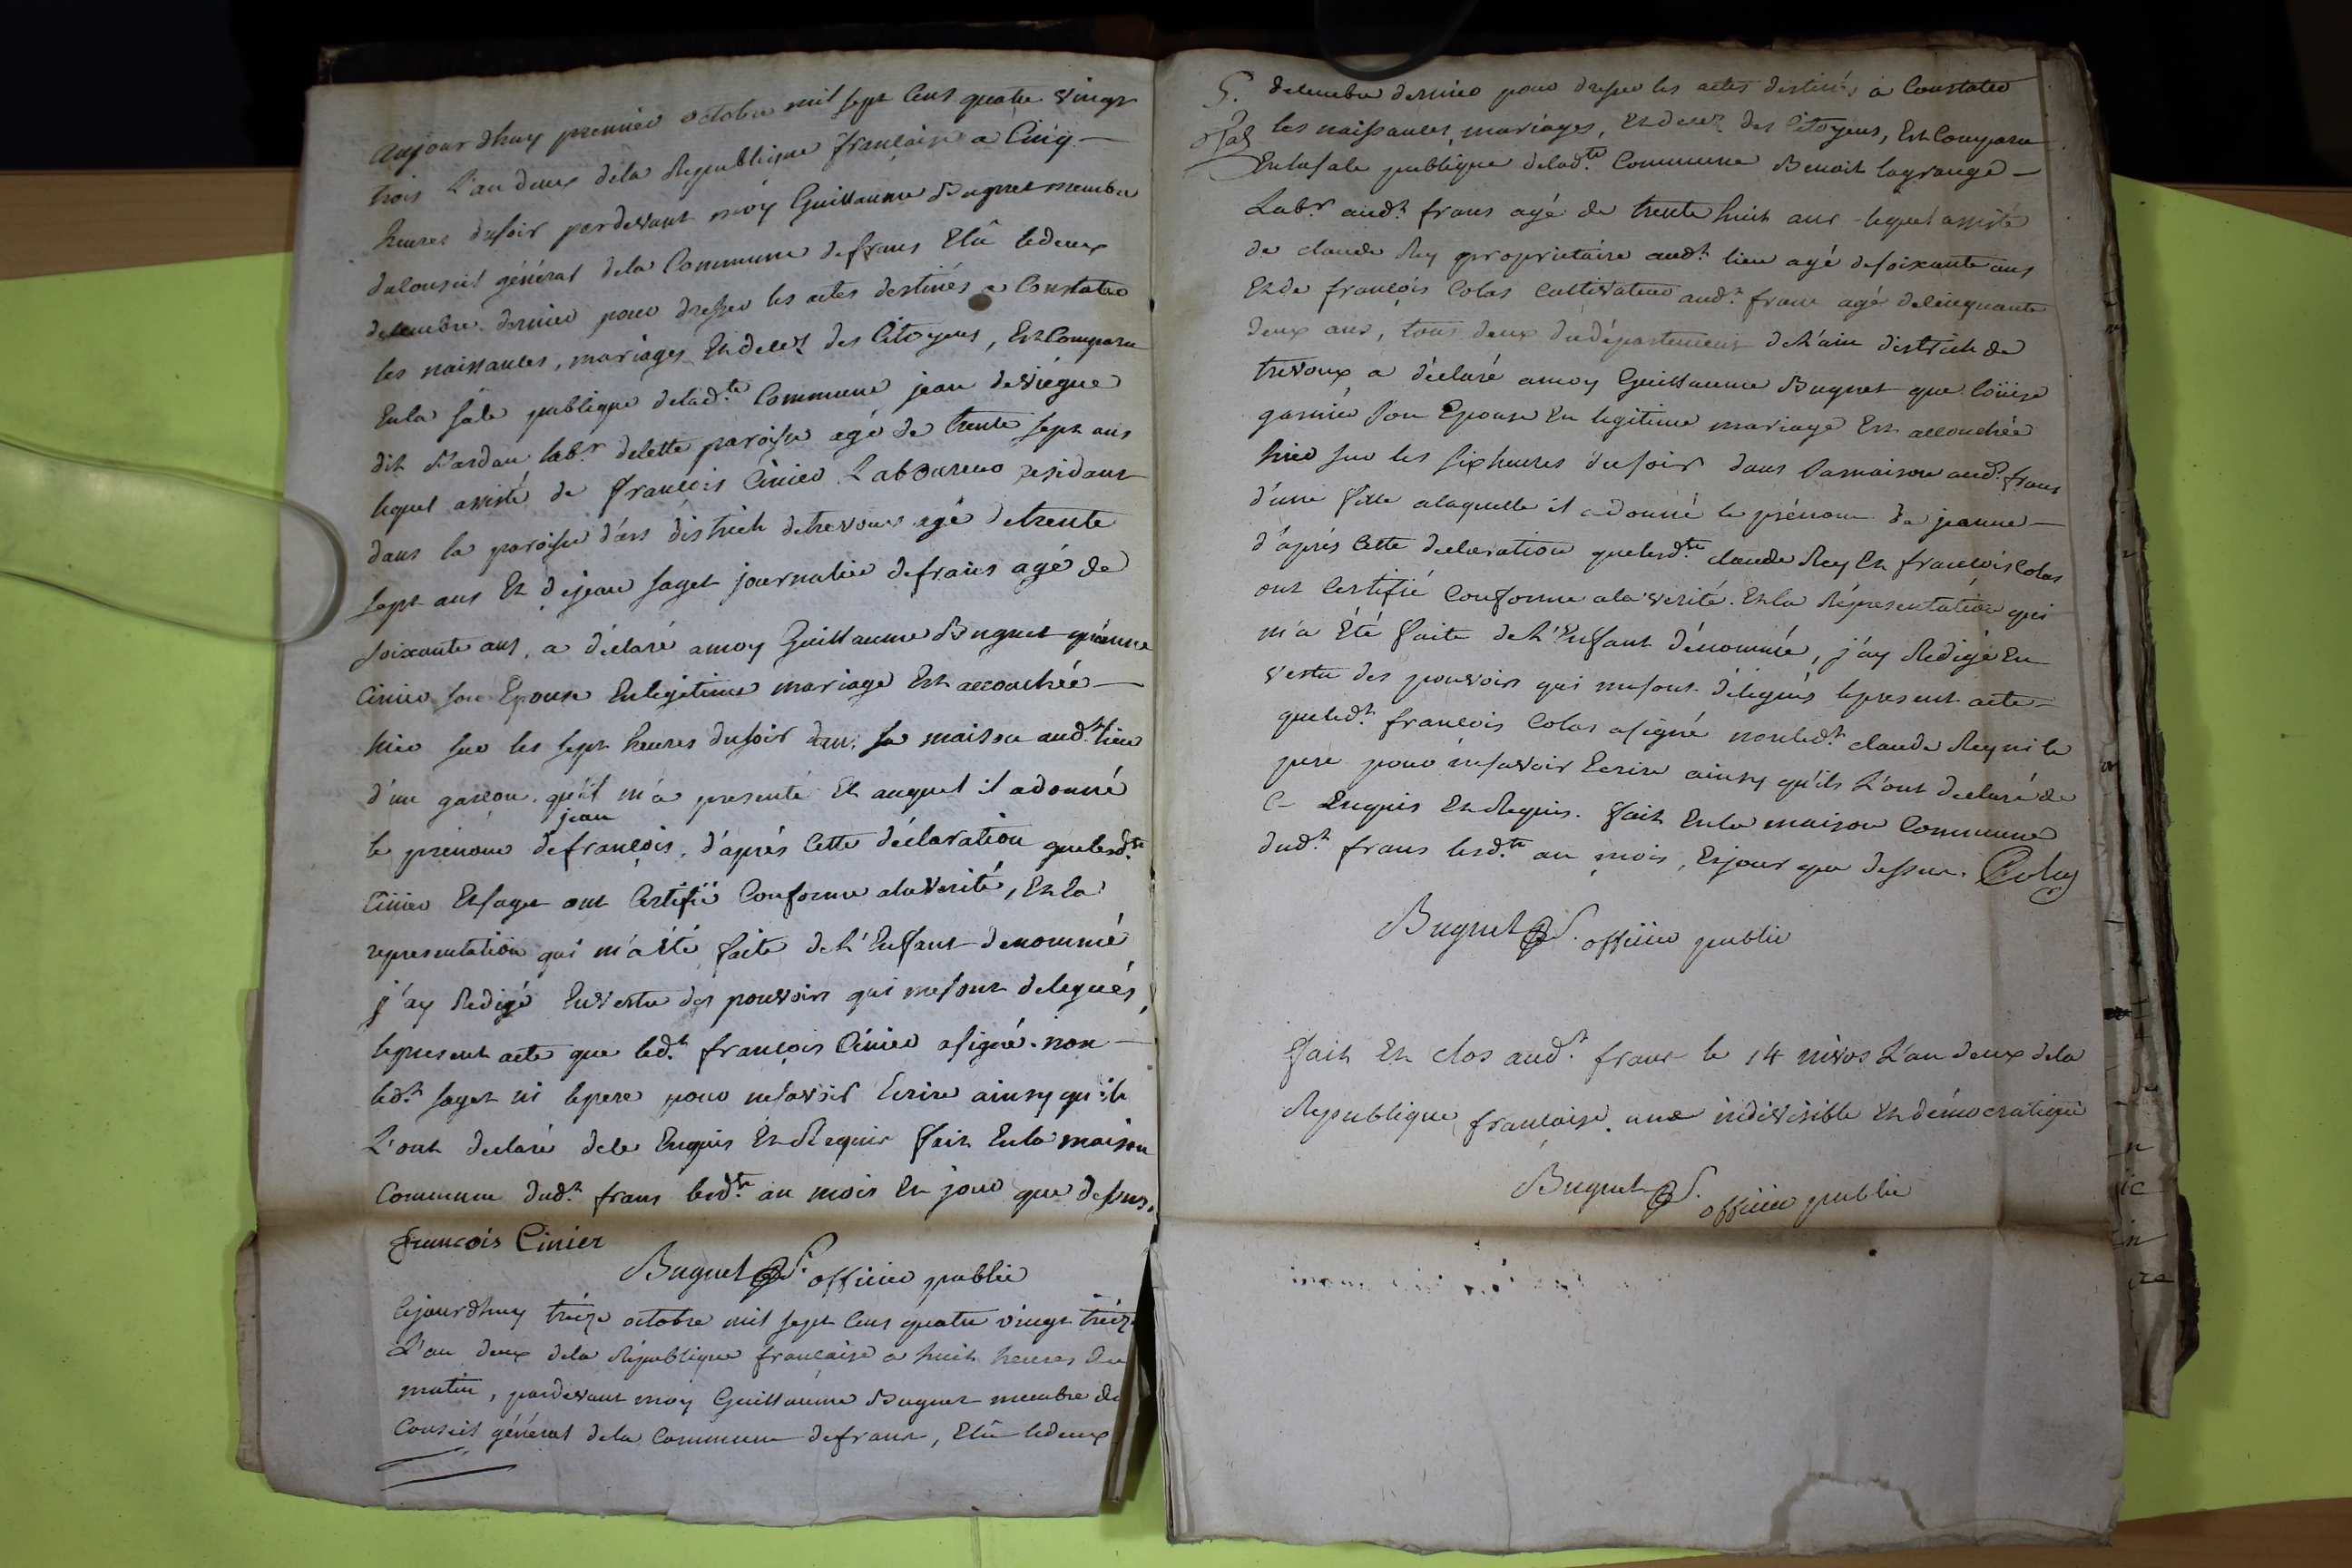 Aujourdhuy premier octobre mil sept cens quatre vingt
trois L'an deux dela Republique francaise a Cinq
heures dusoir pardevant moy Guillaume Buguet membre
du Conseil général dela Commune defrans Elû ledeux
decembre dernier pour dresser les actes destinés a Constater
les naissances, mariages Et decez des Citoyens, Est Comparu
En la sale publique delad.te Commune jean deviegue
dit Dardan lab.r delette paroisse agé de trente sept ans
lequel assisté de francois Cinier Laboureur residant
dans la paroisse d'ars district detrevoux agé detrente
sept ans Et dejean saget journalier defrans agé de
soixante ans, a déclaré amoy Guillaume Buguet qu'anne
Cinier son Epouse Enlégitime mariage Est accouchée
hier sur les sept heures dusoir dans sa maison aud.t lieu
d'un garcon qu'il m'a presenté Et auquel il adonné
jean
le prénom defrancois, d'après Cette déclaration quelesd.ts
Cinier Et saget ont Certifié Conforme alaverité, Et la
representation qui m'aété faite del'Enfant denommé
j'ay Redigé Envertu des pouvoirs qui mesont delegués,
lepresent acte que led.t francois Cinier asigné non
led.t saget ni lepere pour nesavoir Ecrire ainsy qu'ils
L'ont declaré dece Enquis Et Requis fait Enla maison
Commune dud.t frans lesd.ts an mois Et jour que dessus.
francois Cinier
Buguet officier public
Cejourdhuy treize octobre mil sept Cens quatre vingt treize
L'an deux dela Republique francaise a huit heures du
matin, pardevant moy Guillaume Buguet membre du
Conseil général dela Commune defrans, Elû ledeux
5. decembre dernier pour dresser les actes destinés a Constater
les naissances, mariages, Et decez des Citoyens, Est Comparu
Enlasale publique delad.te Commune Benoit lagrange
Lab.r aud.t frans agé de trente huit ans lequel assisté
de claude Rey propriétaire aud.t lieu agé desoixante ans
Et de francois Colas Cultivateur aud.t frans agé decinquante
deux ans, tous deux dudépartement del'ain district de
trevoux a déclaré amoy Guillaume Buguet que loüise
garnier son Epouse En legitime mariage Est accouchée
hier sur les six heures dusoir dans samaison aud.t frans
d'une fille alaquelle il adonné le prénom de jeanne
d'après Cette declaration quelesd.ts claude Rey Et francois Colas
ont Certifié Conforme ala verité. Et la Répresentation qui
m'a Eté faite del'Enfant dénommée, j'ay Redigé En
vertu des pouvoirs qui mesont délegués lepresent acte
queled.t francois Colas asigné nonled.t claude Rey ni le
pere pour nesavoir Ecrire ainsy qu'ils L'ont declaré de
Ce Enquis Et Requis. fait Enla maison Commune
dud.t frans lesd.ts an mois, Et jour que dessus. Colas
Buguet officier public
fait Et clos aud.t frans le 14 nivos L'an deux dela
Republique francaise. une indivisible Et démocratique
Buguet officier public